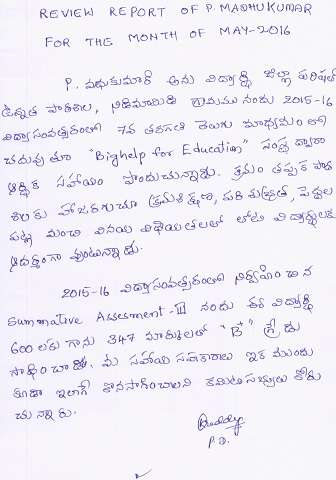 REVIEW REPORT OF P. MADHUKUMAR
FOR THE MONTH OF MAY-2016
P. మధుకుమార్ అను విద్యార్థి జిల్లా పరిషత్
ఉన్నత పాఠశాల, నిడమానూరు గ్రామము నందు 2015-16
విద్యాసంవత్సరంలో 7వ తరగతి తెలుగు మాధ్యమంలో
చదువుతూ "Bighelp for Education" సంస్థ ద్వారా
ఆర్థిక సహాయం పొందుచున్నాడు. క్రమం తప్పక పాఠ
శాలకు హాజరగుచూ క్రమశిక్షణ, పరిశుభ్రత, పెద్దల
పట్ల మంచి వినయ విధేయతలతో తోటి విద్యార్థులకు
ఆదర్శంగా వుంటున్నాడు.
2015-16 విద్యాసంవత్సరంలో నిర్వహించిన
Summative Assesment-III నందు ఈ విద్యార్థి
600 లకు గాను 347 మార్కులతో "B+" గ్రేడు
సాధించాడు. మీ సహాయ సహకారాలు ఇక ముందు
కూడా ఇలాగే కొనసాగించాలని కమిటి సభ్యులు కోరు
చున్నారు.
P.D.